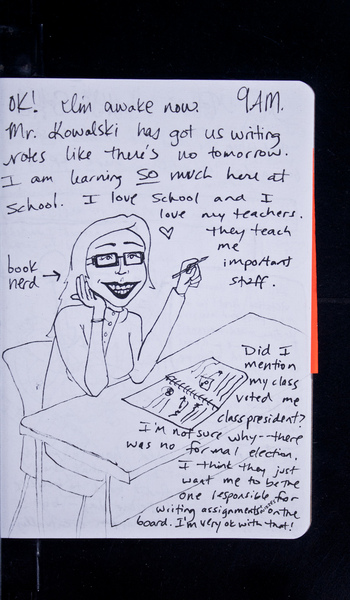 OK! I'm awake now. 9 A.M.
Mr. Kowalski has got us writing
notes like there's no tomorrow.
I am learning SO much here at
school. I love school and I
love my teachers.
they teach
me
important
stuff.
book
nerd →
Did I
mention
my class
voted me
class president?
I'm not sure why--there
was no formal election.
I think they just
want me to be the
one responsible for
writing assignments on the
board. I'm very ok with that!